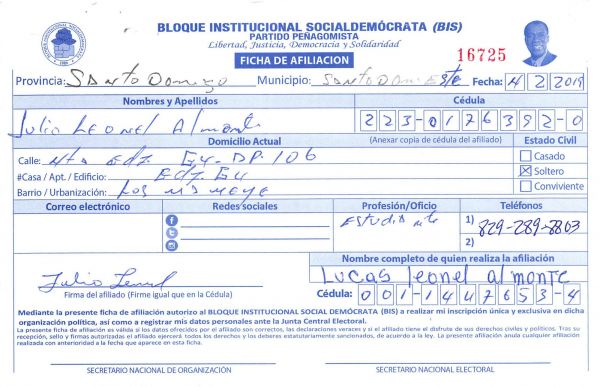 BLOQUE INSTITUCIONAL SOCIALDEMÓCRATA (BIS)
PARTIDO PEÑAGOMISTA
Libertad, Justicia, Democracia y Solidaridad
FICHA DE AFILIACION
16725
Provincia: Santo Domingo Municipio: Santo Dom Este Fecha: 4 2 2019
Nombres y Apellidos Cédula
Julio Leonel Almonte 223-0176392-0
Domicilio Actual (Anexar copia de cédula del afiliado) Estado Civil
Calle: Edf. G4. DP. 106 Casado
#Casa / Apt. / Edificio: Edf. G4 Soltero
Barrio / Urbanización: Los Conviviente
Correo electrónico Redes sociales Profesión/Oficio Teléfonos
Estudiante 1) 829-289-8803
2)
Nombre completo de quien realiza la afiliación
Julio Leonel Lucas leonel almonte
Firma del afiliado (Firme igual que en la Cédula) Cédula: 001-1447653-4
Mediante la presente ficha de afiliación autorizo al BLOQUE INSTITUCIONAL SOCIAL DEMÓCRATA (BIS) a realizar mi inscripción única y exclusiva en dicha
organización política, así como a registrar mis datos personales ante la Junta Central Electoral.
La presente ficha de afiliación es válida si los datos ofrecidos por el afiliado son correctos, las declaraciones veraces y si el afiliado tiene el disfrute de sus derechos civiles y políticos. Tras su
recepción, sello y firmas autorizadas el afiliado ejercerá todos los derechos y los deberes estatutariamente sancionados, de acuerdo a la ley. La presente afiliación anula cualquier afiliación
realizada con anterioridad a la fecha que aparece en esta ficha.
SECRETARIO NACIONAL DE ORGANIZACIÓN SECRETARIO NACIONAL ELECTORAL